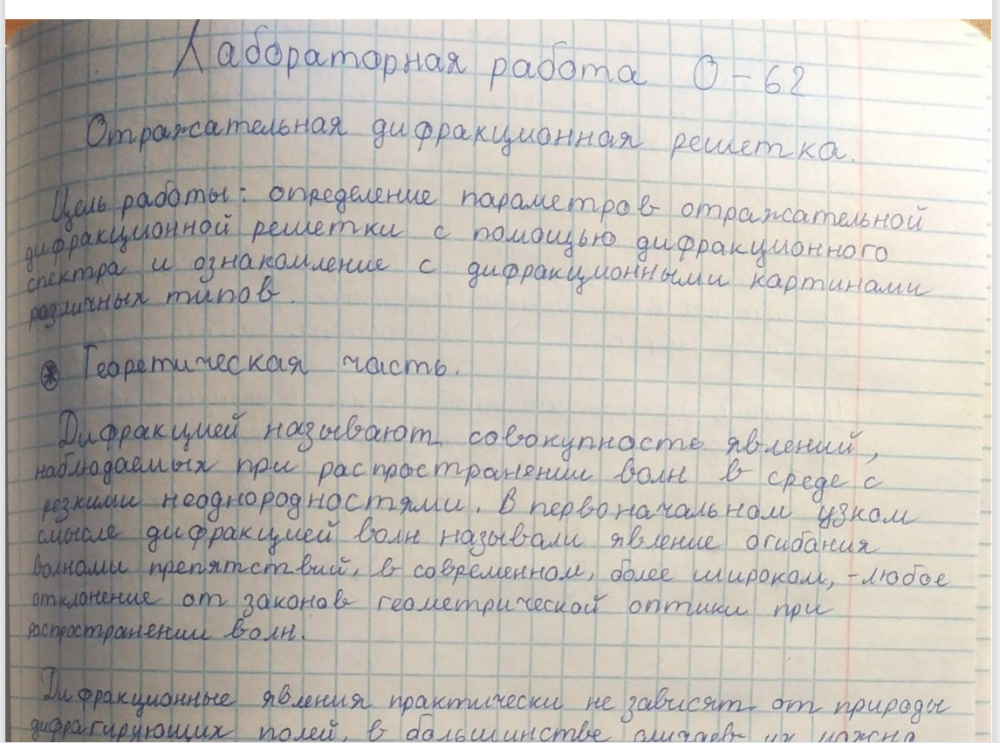 Лабораторная работа О-62
Отражательная дифракционная решетка.
Цель работы: определение параметров отражательной
дифракционной решетки с помощью дифракционного
спектра и ознакомление с дифракционными картинами
различных типов.
Теоретическая часть.
Дифракцией называют совокупность явлений,
наблюдаемых при распространении волн в среде с
резкими неоднородностями. В первоначальном узком
смысле дифракцией волн называли явление огибания
волнами препятствий, в современном, более широком, -любое
отклонение от законов геометрической оптики при
распространении волн.
Дифракционные явления практически не зависят от природы
дифрагирующих полей, в большинстве случаев их можно